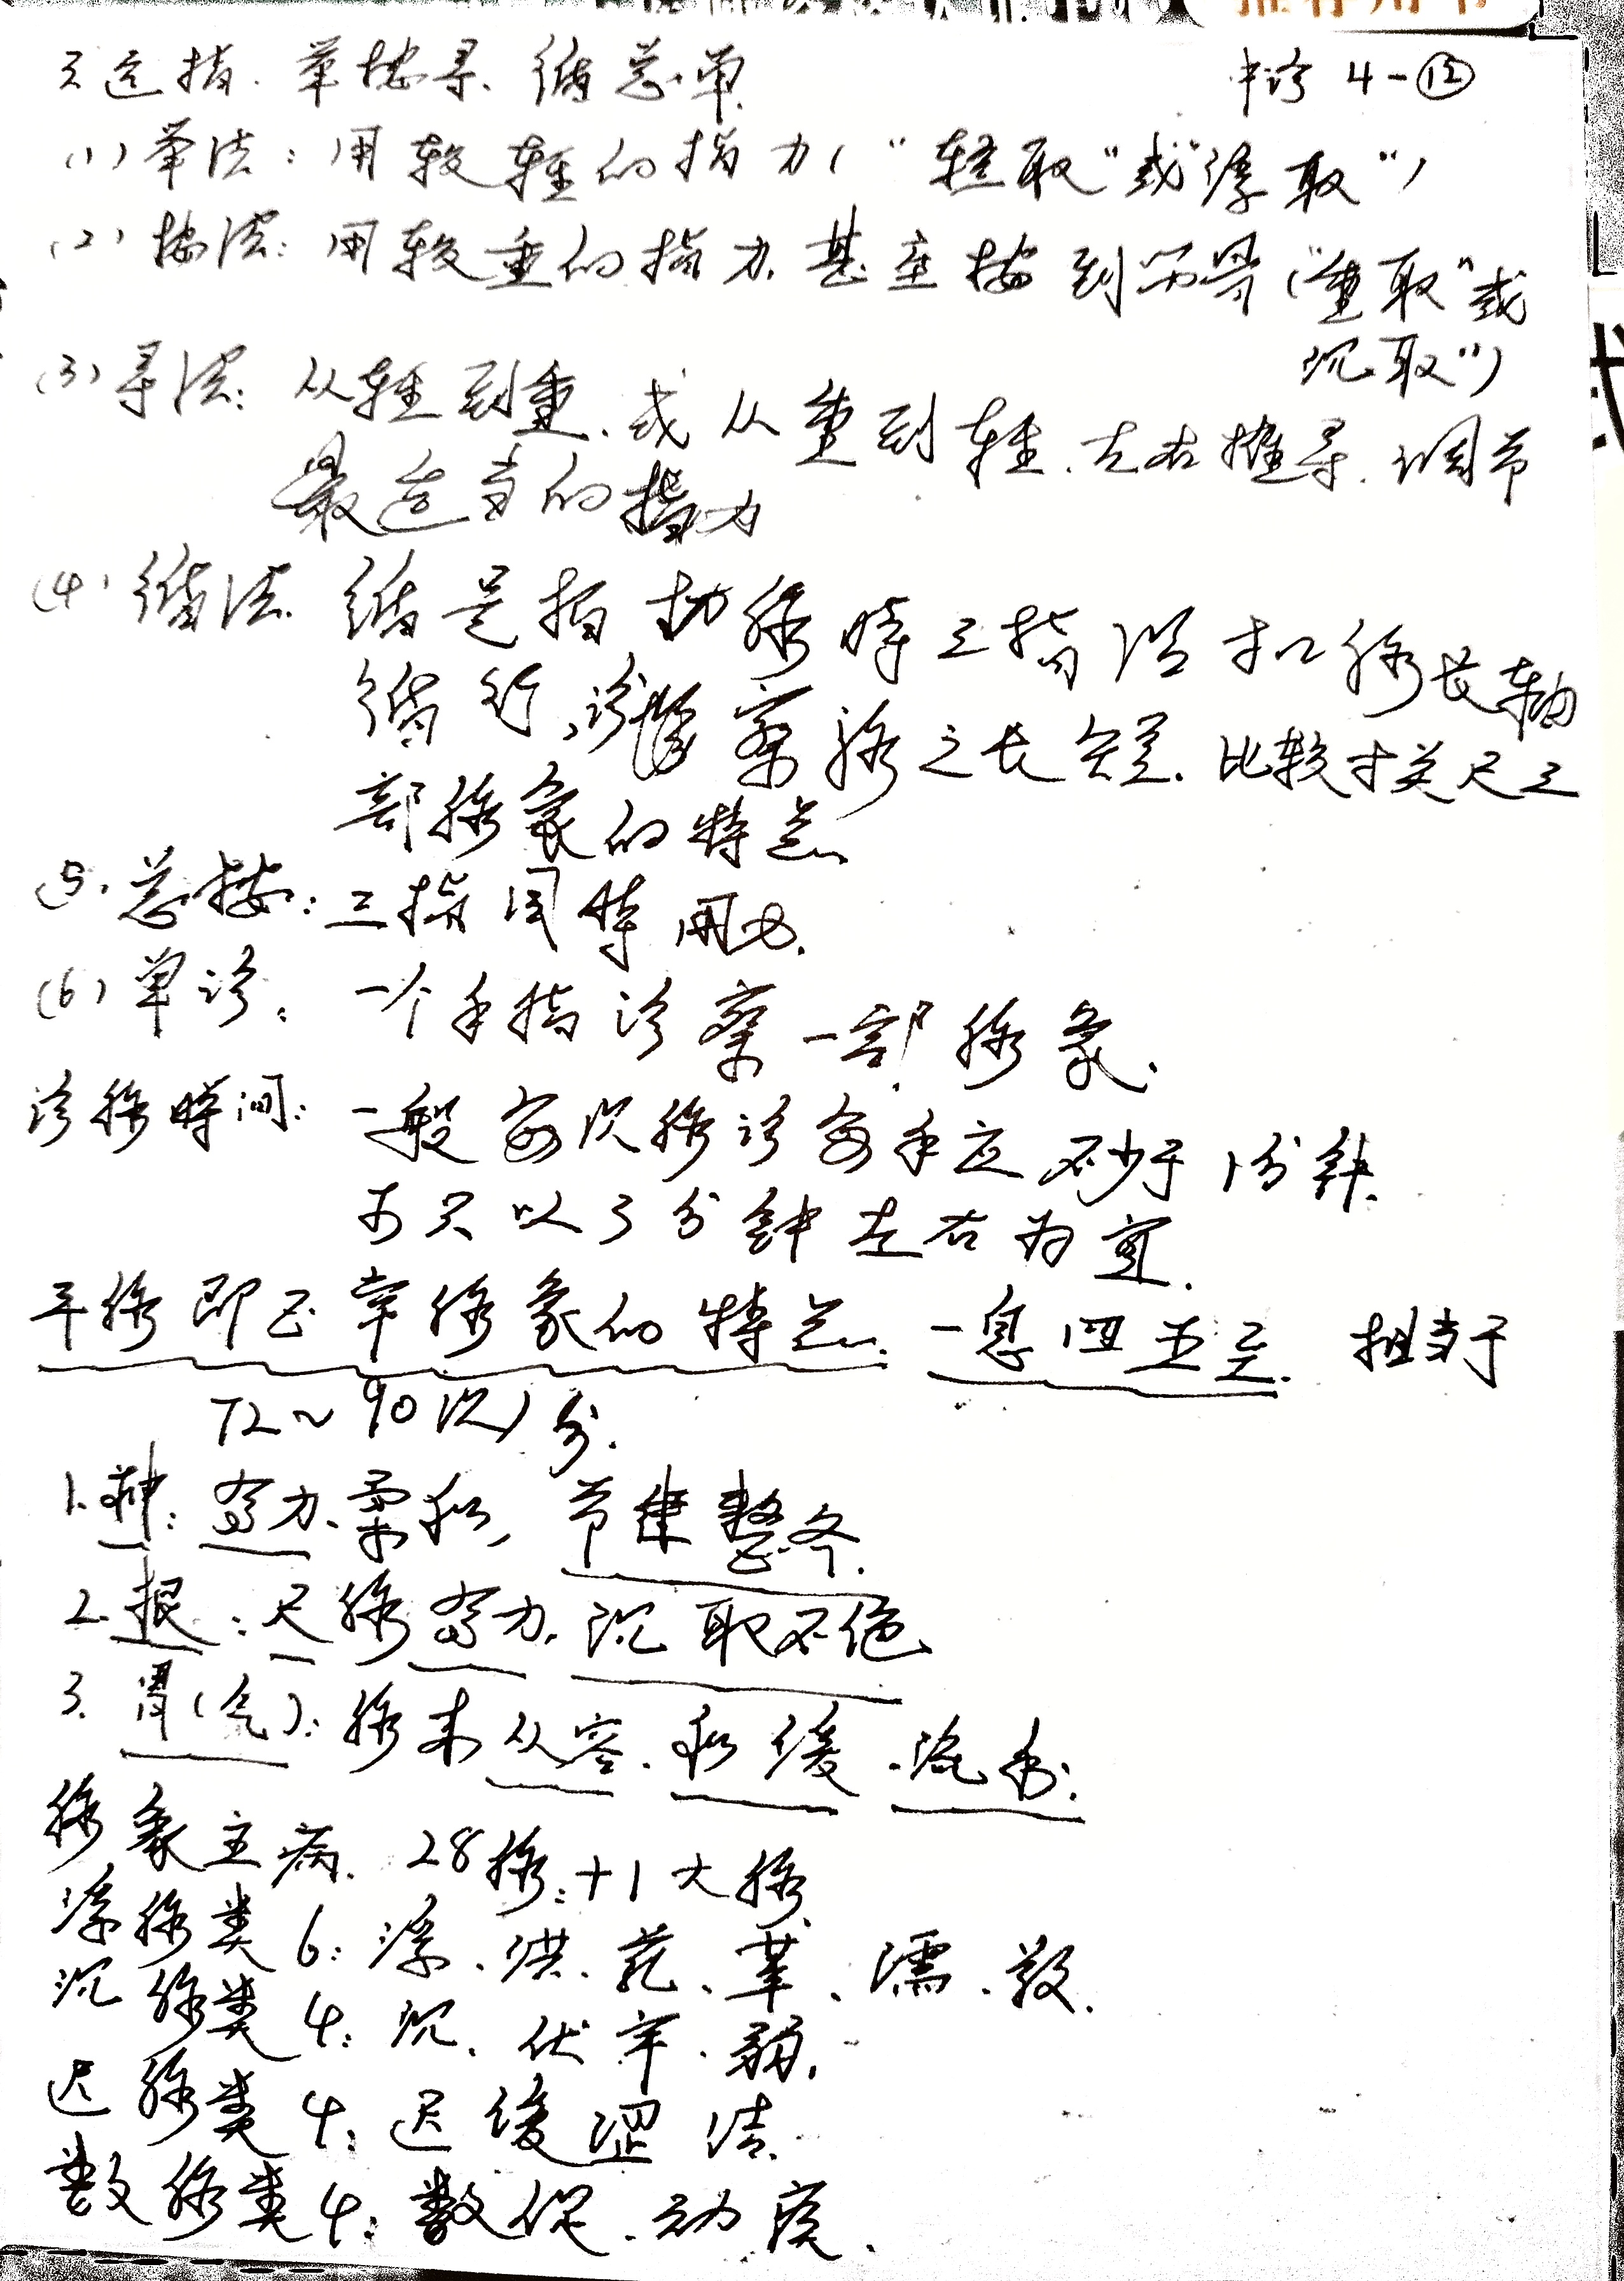 3.运指.举按寻.循总.单.
中诊 4-⑫
(1)举法:用较轻的指力("轻取"或"浮取")
(2)按法:用较重的指力.甚至按到筋骨("重取"或
沉取")
(3)寻法:从轻到重.或从重到轻.左右推寻.调节
最适当的指力
(4)循法.循是指切脉時三指沿寸口脉长轴
循行、诊察脉之长短.比较寸关尺三
部脉象的特点
(5)总按:三指同時用力.
(6)单诊:一个手指诊察一部脉象.
诊脉時间:一般每次脉诊每手应不少于1分钟.
两手以3分钟左右为宜.
平脉即正常脉象的特点.一息四五至.相当于
72~90次/分.
1.神:有力.柔和,节律整齐.
2.根:尺脉有力.沉取不绝
3.胃(气):脉来从容.和缓.流利.
脉象主病.28脉:+1大脉
浮脉类6:浮.洪.芤.革.濡.散.
沉脉类4:沉.伏牢.弱.
迟脉类4:迟缓涩结.
数脉类4:数促.动疾.